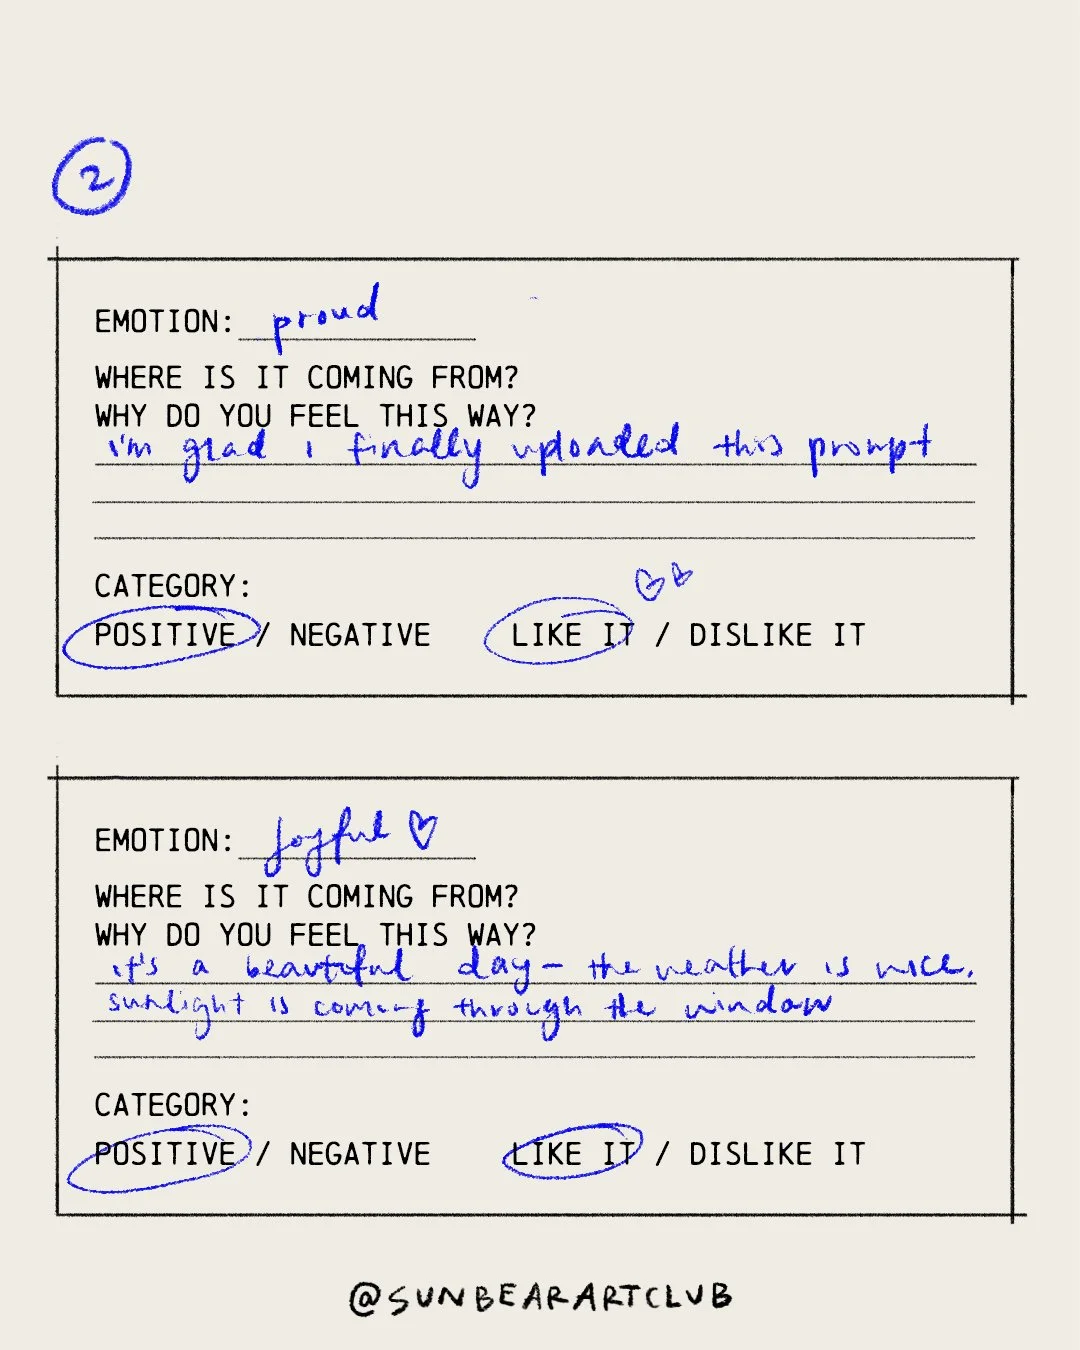 2
EMOTION: proud
WHERE IS IT COMING FROM?
WHY DO YOU FEEL THIS WAY?
i'm glad i finally uploaded this prompt
CATEGORY:
POSITIVE / NEGATIVE LIKE IT / DISLIKE IT
EMOTION: joyful
WHERE IS IT COMING FROM?
WHY DO YOU FEEL THIS WAY?
it's a beautiful day - the weather is nice.
sunlight is coming through the window
CATEGORY:
POSITIVE / NEGATIVE LIKE IT / DISLIKE IT
@SUNBEARARTCLUB